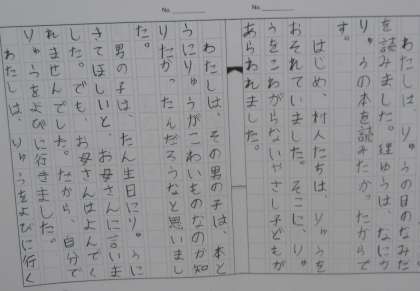 No.
No.
わたしは、りゅうの目のなみだ
を読みました。理ゆうは、なにか
りゅうの本を読みたかったからで
す。
はじめ、村人たちは、りゅうを
おそれていました。そこに、りゅ
うをこわがらないやさし子どもが
あらわれました。
わたしは、その男の子は、本と
うにりゅうがこわいものなのか知
りたかったんだろうなと思いまし
た。
男の子は、たん生日にりゅうに
きてほしいと、お母さんに言いま
した。でも、お母さんはよんでく
れませんでした。だから、自分で
りゅうをよびに行きました。
わたしは、りゅうをよびに行く